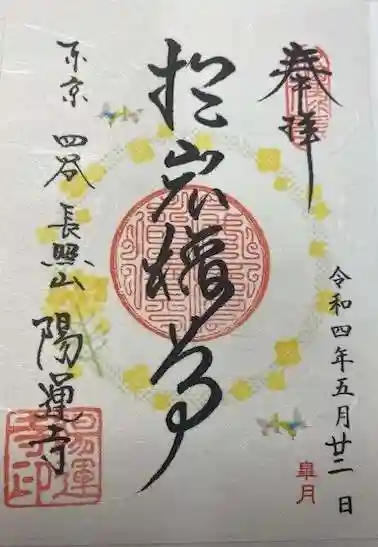 奉拝
令和四年五月廿二日
皐月
於岩稲荷
東京四谷長照山陽運寺
陽運
寺印